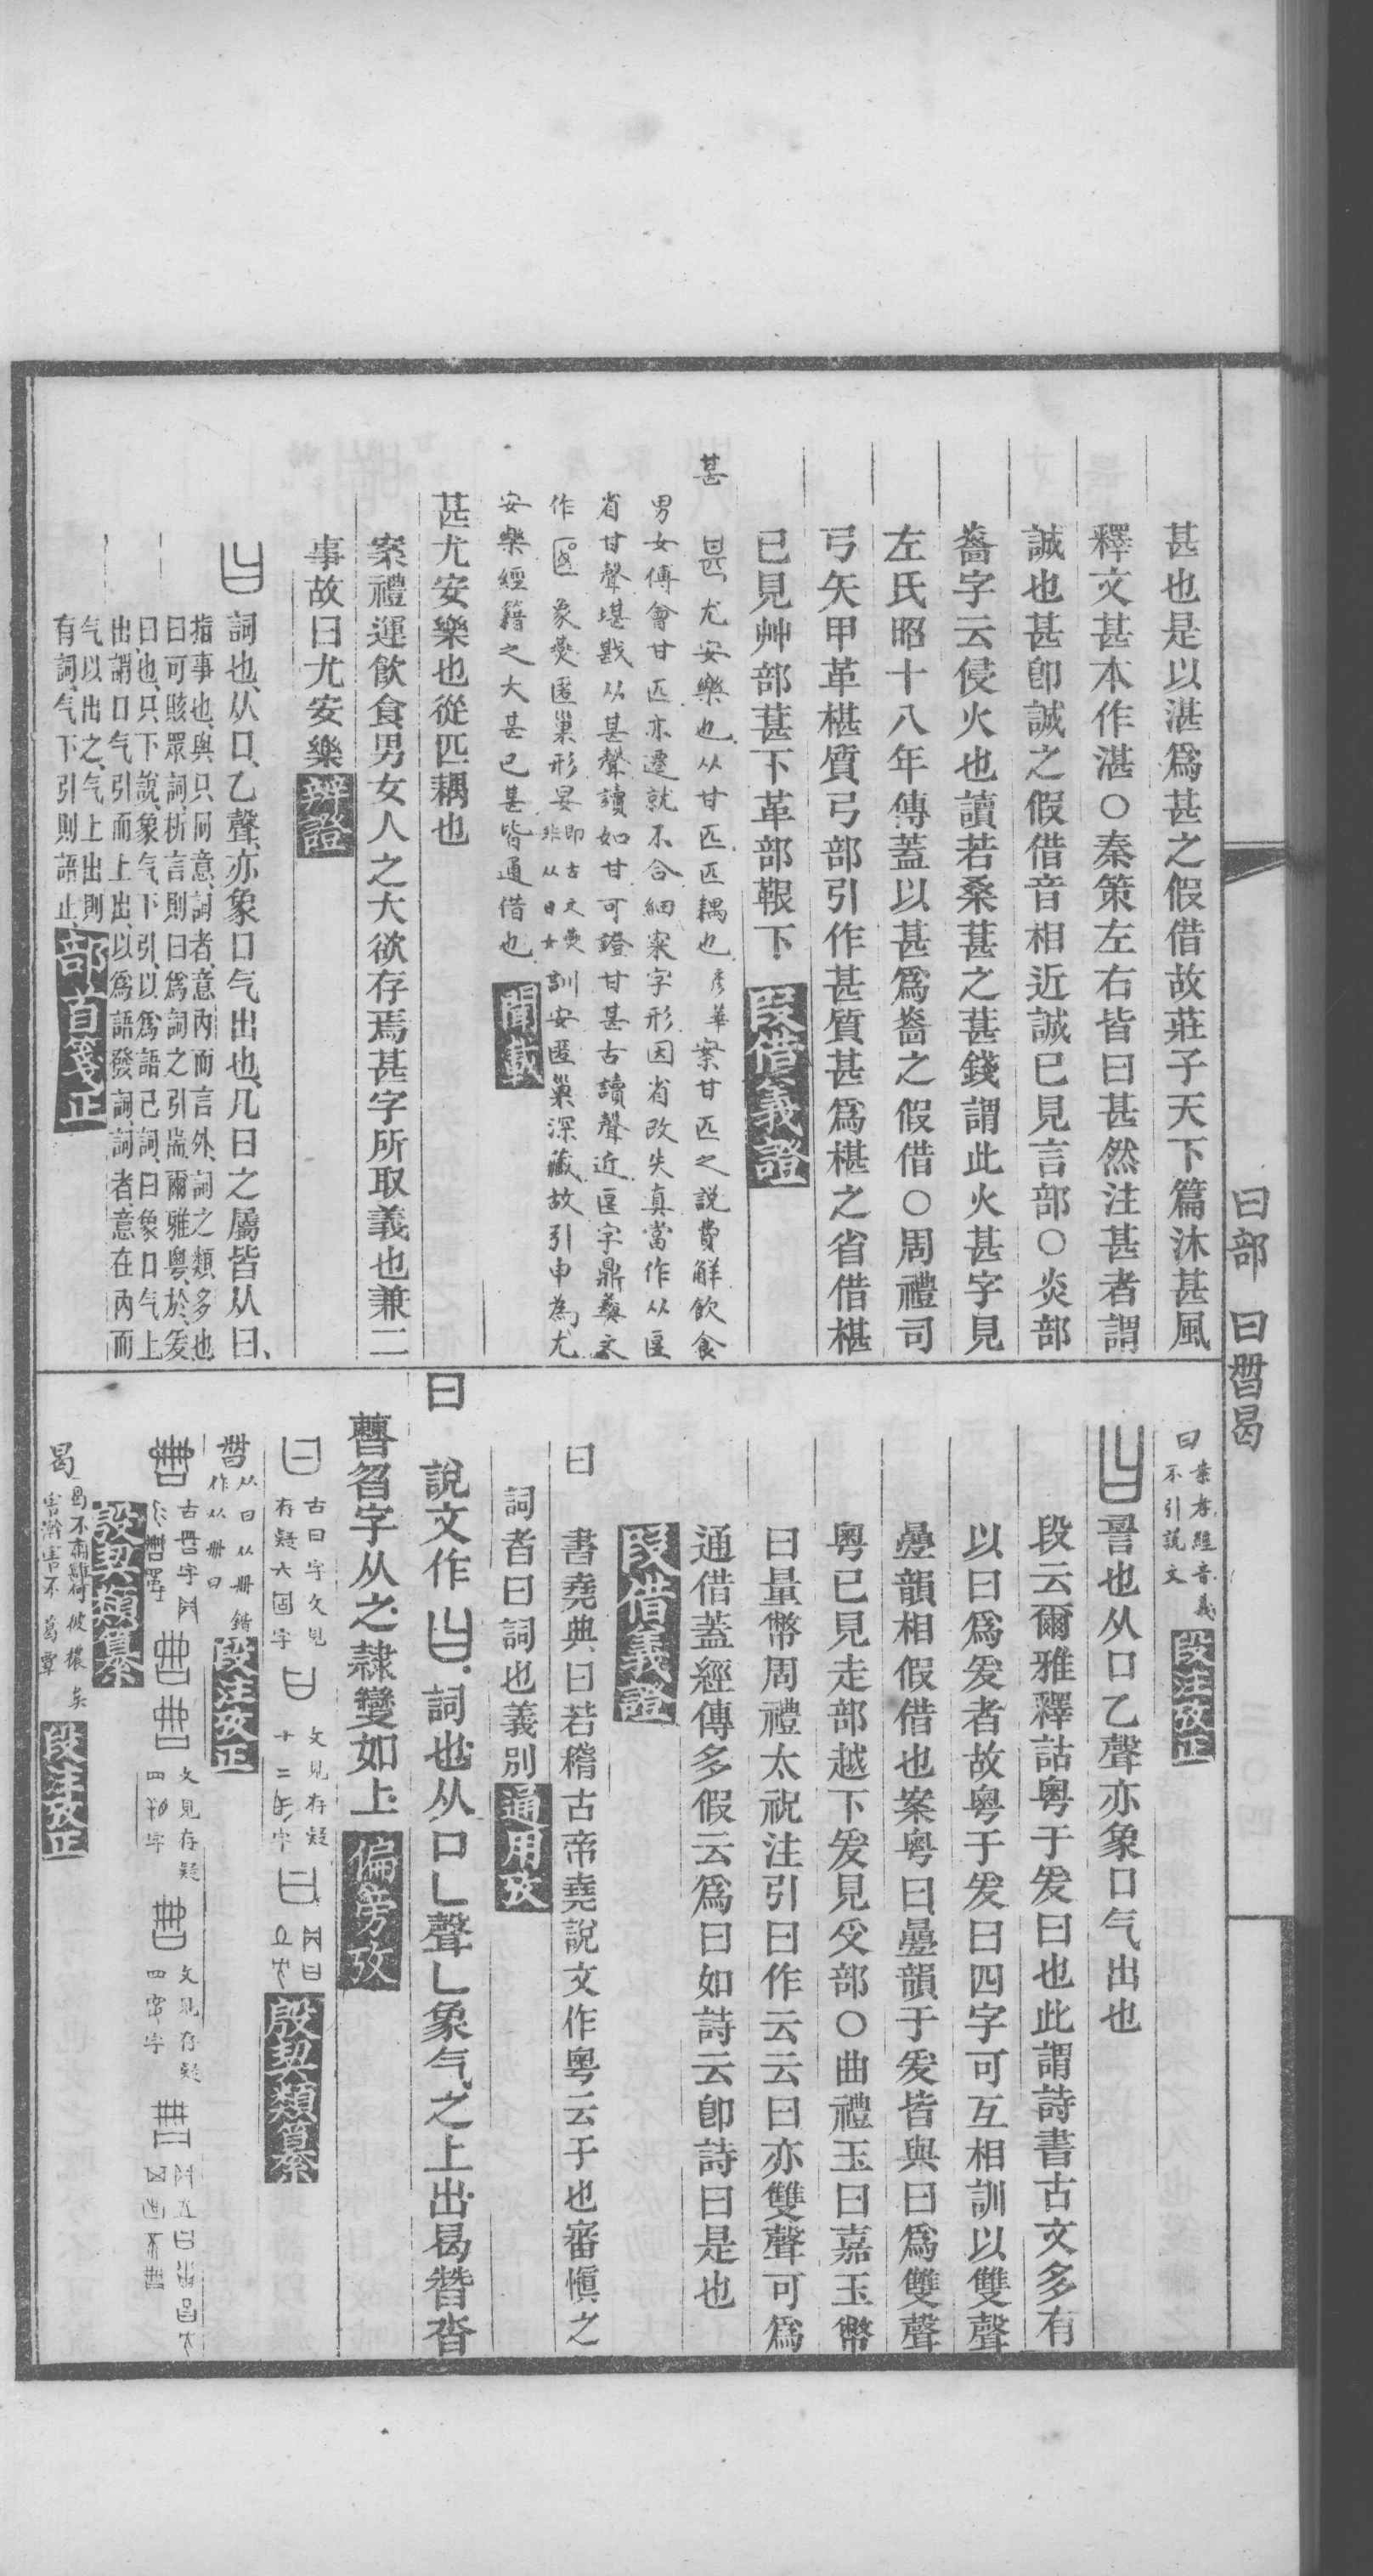 曰部　曰朁曷
甚也是以湛爲甚之假借故莊子天下篇沐甚風
釋文甚本作湛○秦策左右皆曰甚然注甚者謂
諴也甚卽諴之假借音相近諴已見言部○炎部
燅字云侵火也讀若桑葚之葚錢謂此火甚字見
左氏昭十八年傳蓋以甚爲燅之假借○周禮司
弓矢甲革椹質弓部引作甚質甚爲椹之省借椹
已見艸部葚下革部䩞下 段借義證
甚 尤安樂也从甘匹匹耦也彥華案甘匹之說費解飲食
男女傅會甘匹亦遷就不合細案字形因省改失真當作从匽
省甘聲堪戡从甚聲讀如甘可證甘甚古讀聲近匽字鼎彝文
作 象燕匿巢形晏卽古文燕非从日女訓安匿巢深藏故引申為尤
安樂經籍之大甚已甚皆通借也 聞載
甚尤安樂也從匹耦也
案禮運飲食男女人之大欲存焉甚字所取義也兼二
事故曰尤安樂 辨證
詞也、从口、乙聲、亦象口气出也、凡曰之屬皆从曰、
指事也、與只同意、詞者、意內而言外、詞之類多也
曰可賅眾詞、析言則曰爲詞之引耑、爾雅粵、於、爰
曰也、只下說、象气下引、以爲語已詞、曰象口气上
出、謂口气引而上出、以爲語發詞、詞者、意在內而
气以出之、气上出則
有詞、气下引則語止、 部首箋正
曰 不引說文 段注攷正
䛐也从口乙聲亦象口气出也
段云爾雅釋詁粵于爰曰也此謂詩書古文多有
以曰爲爰者故粵于爰曰四字可互相訓以雙聲
疊韻相假借也案粵曰疊韻于爰皆與曰爲雙聲
粵已見走部越下爰見𠬪部○曲禮玉曰嘉玉幣
曰量幣周禮太祝注引曰作云云曰亦雙聲可爲
通借蓋經傳多假云爲曰如詩云卽詩曰是也
段借義證
曰 書堯典、曰若稽古帝堯說文作粵云于也審愼之
詞者曰詞也義別 通用攷
曰 說文作 詞也从口乚聲乚象气之上出曷朁沓
朁曶字从之隷變如上 偏旁攷
古曰字文見存疑六 字 文見存疑十二 字 殷契類纂
朁 从曰从册 作从册曰 段注攷正
古朁字 文見存疑四 字 文見存疑四 字 殷契類纂
曷 段注攷正